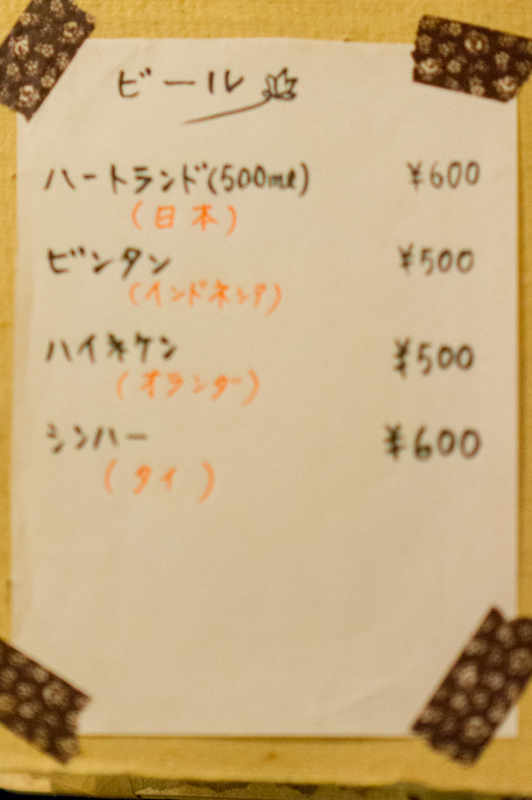 ビール
ハートランド(500ml) ¥600
(日本)
ビンタン ¥500
(インドネシア)
ハイネケン ¥500
(オランダ)
シンハー ¥600
(タイ)